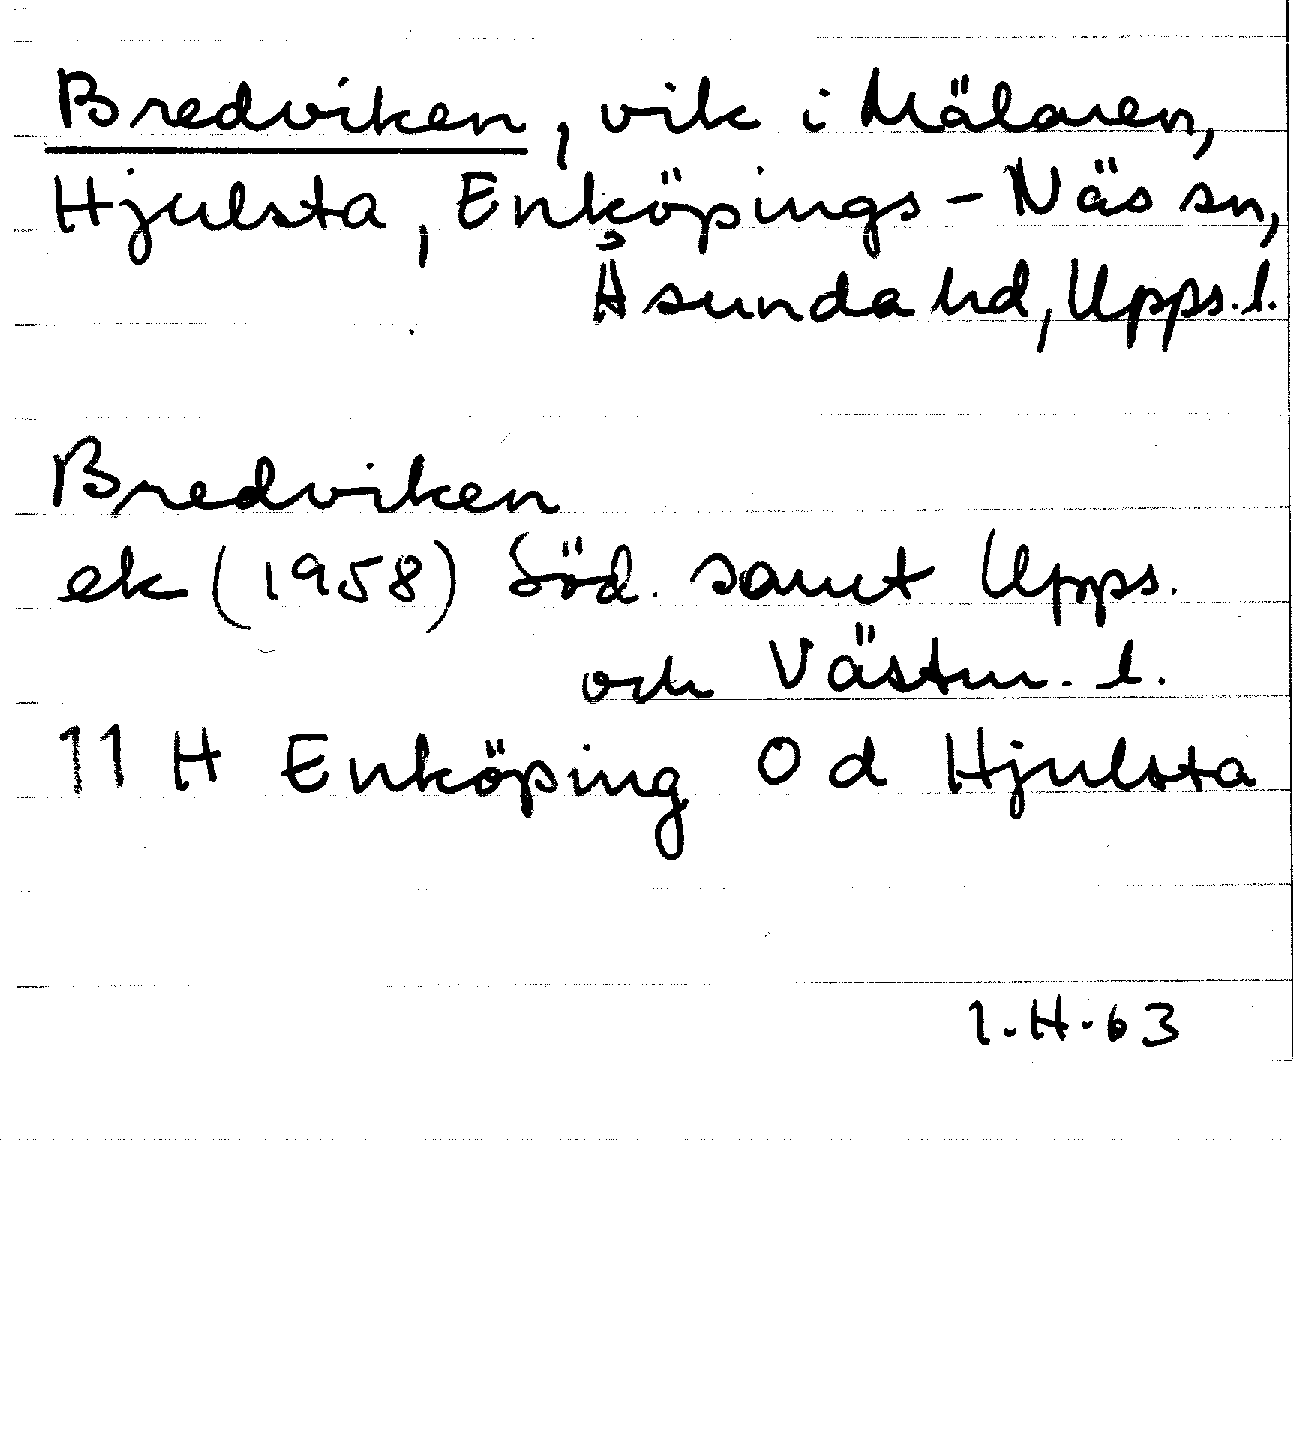 Bredviken, vik i Mälaren,
Hjulsta, Enköpings-Näs sn,
Åsunda hd, Upps. l.
Bredviken
ek (1958) Söd. samt Upps.
och Västm. l.
11 H Enköping 0 d Hjulsta
1.H.63